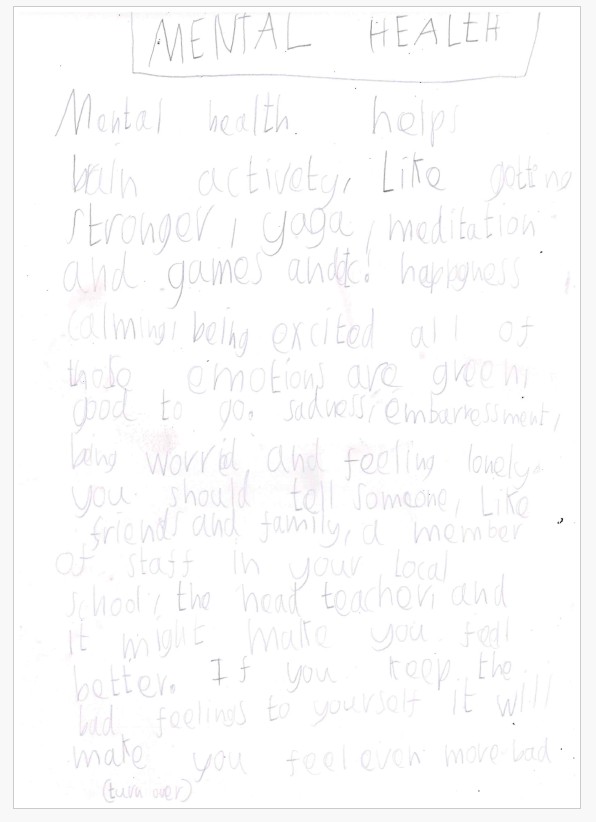 MENTAL HEALTH
Mental health. helps
brain activety, Like getting
stronger, yaga, meditation
and games and etc! happyness
calming, being excited all of
those emotions are green,
good to go. sadness, embarressment,
being worrid, and feeling lonely.
you should tell someone, Like
friends and family, a member
of staff in your local
school, the head teacher, and
it might make you feel
better. If you keep the
bad feelings to yourself it will
make you feel even more bad.
(turn over)